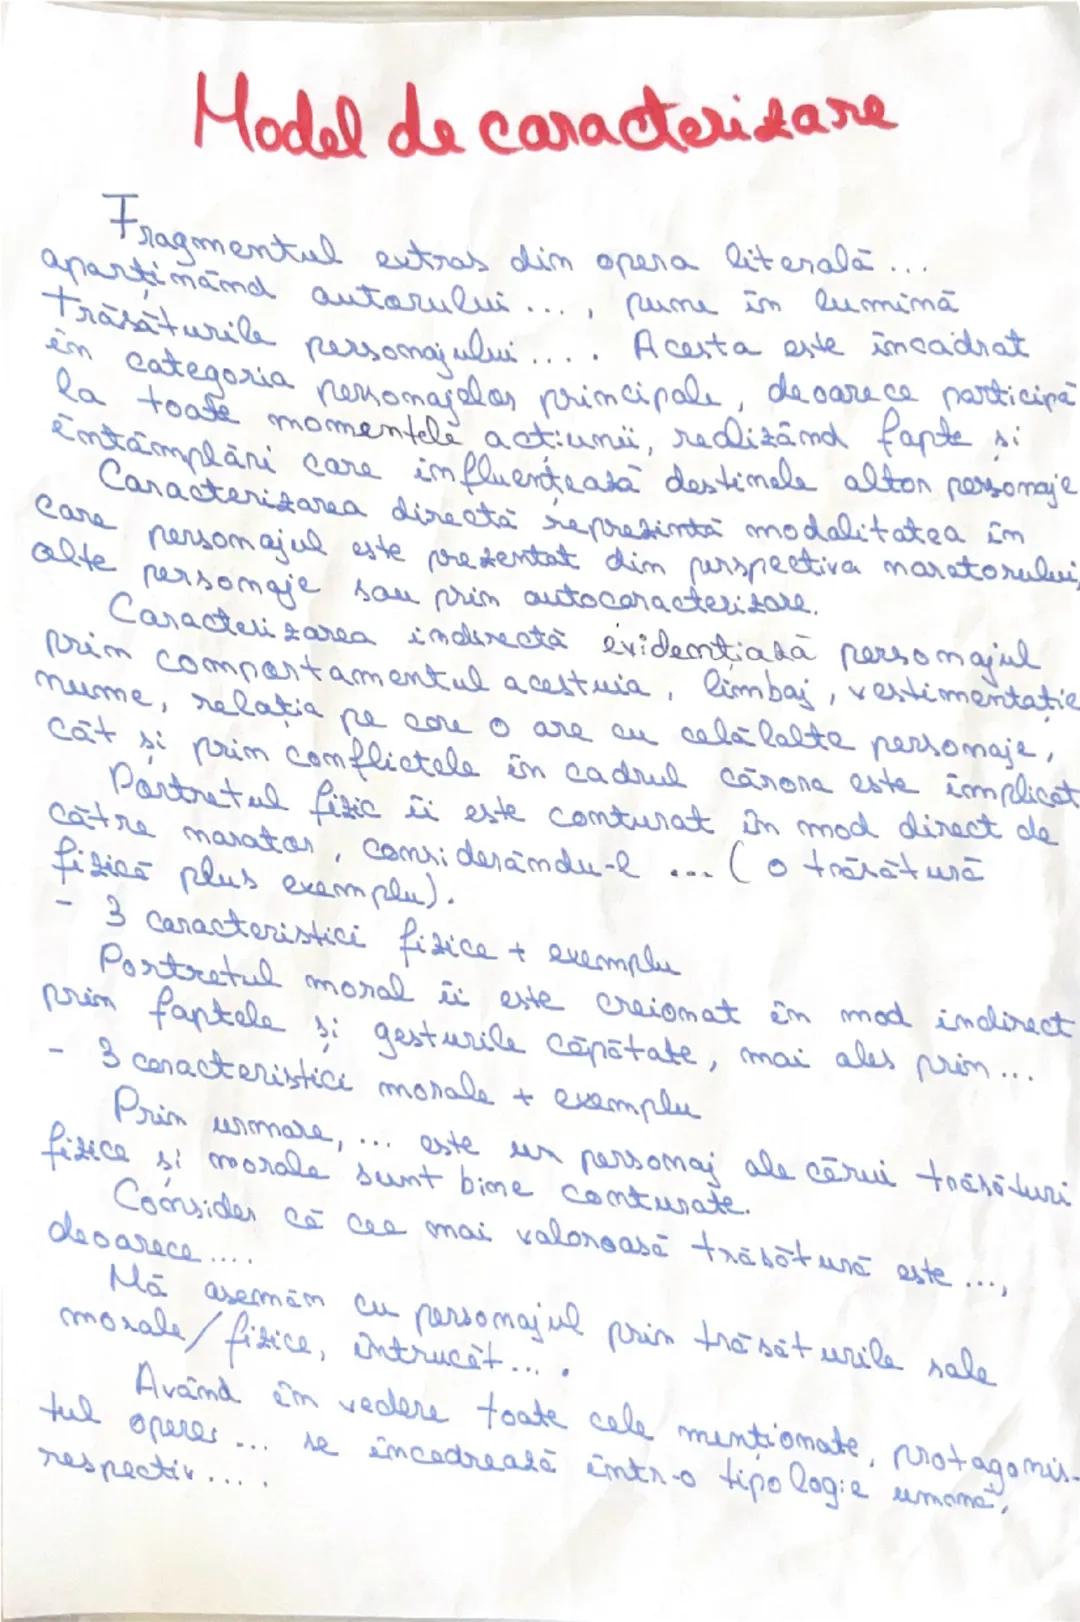 Model de caracterizare
Fragmentul extras din opera literală ...
aparținând autorului ..., pune în lumină
trăsăturile personajului .... Acesta este încadrat
în categoria personajelor principale, deoarece participă
la toate momentele acțiunii, realizând fapte și
întâmplări care influențează destinele altor personaje
Caracterizarea directă reprezintă modalitatea în
care personajul este prezentat din perspectiva naratorului,
alte personaje sau prin autocaracterizare.
Caracterizarea indirectă evidențiază personajul
prin comportamentul acestuia, limbaj, vestimentație
nume, relația pe care o are cu celălalte personaje,
cât și prin conflictele în cadrul cărora este implicat
Portretul fizic îi este conturat în mod direct de
către narator, considerându-l ... (o trăsătură
fizică plus exemplu).
- 3 caracteristici fizice + exemplu
Portretul moral îi este creionat în mod indirect
prin faptele și gesturile căpătate, mai ales prin ...
- 3 caracteristici morale + exemplu
Prin urmare, ... este un personaj ale cărui trăsături
fizice și morale sunt bine conturate.
Consider că cea mai valoroasă trăsătură este ...,
deoarece ....
Mă asemăn cu personajul prin trăsăturile sale
morale/fizice, întrucât ... .
Având în vedere toate cele menționate, protagonis-
tul operei ... se încadrează într-o tipologie umană,
respectiv ....